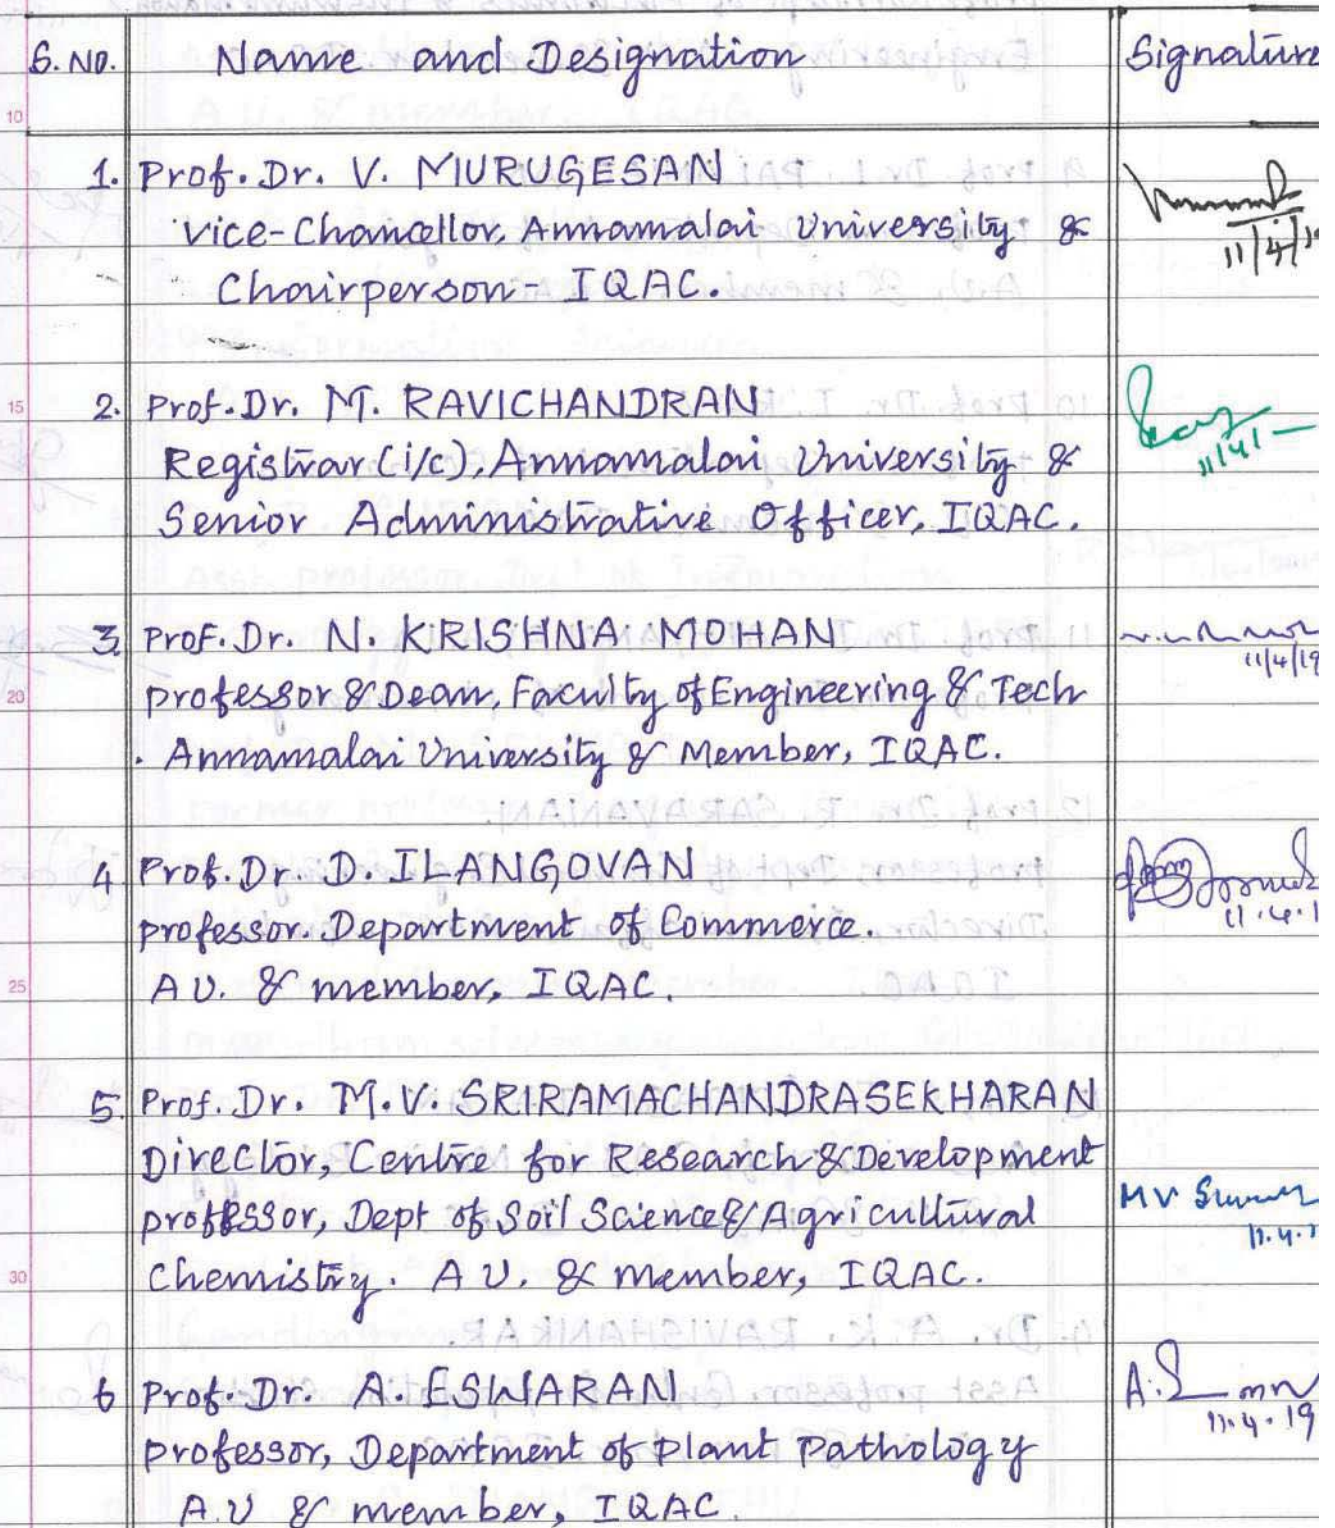 S. NO. Name and Designation Signature
10
1. Prof. Dr. V. MURUGESAN
Vice-Chancellor, Annamalai University &
Chairperson - IQAC.
11/4/19
15
2. Prof. Dr. M. RAVICHANDRAN
Registrar (i/c), Annamalai University &
Senior Administrative Officer, IQAC.
11/4/
3 Prof. Dr. N. KRISHNA MOHAN
11/4/19
20
professor & Dean, Faculty of Engineering & Tech
Annamalai University & Member, IQAC.
4 Prof. Dr. D. ILANGOVAN
professor. Department of Commerce.
11.4.1
25
A U. & member, IQAC.
5. Prof. Dr. M. V. SRIRAMACHANDRASEKHARAN
Director, Centre for Research & Development
professor, Dept of Soil Science & Agricultural
MV
11.4.1
30
Chemistry. A U. & member, IQAC.
6 Prof. Dr. A. ESWARAN
A.
11.4.19
professor, Department of Plant Pathology
A.U & member, IQAC.